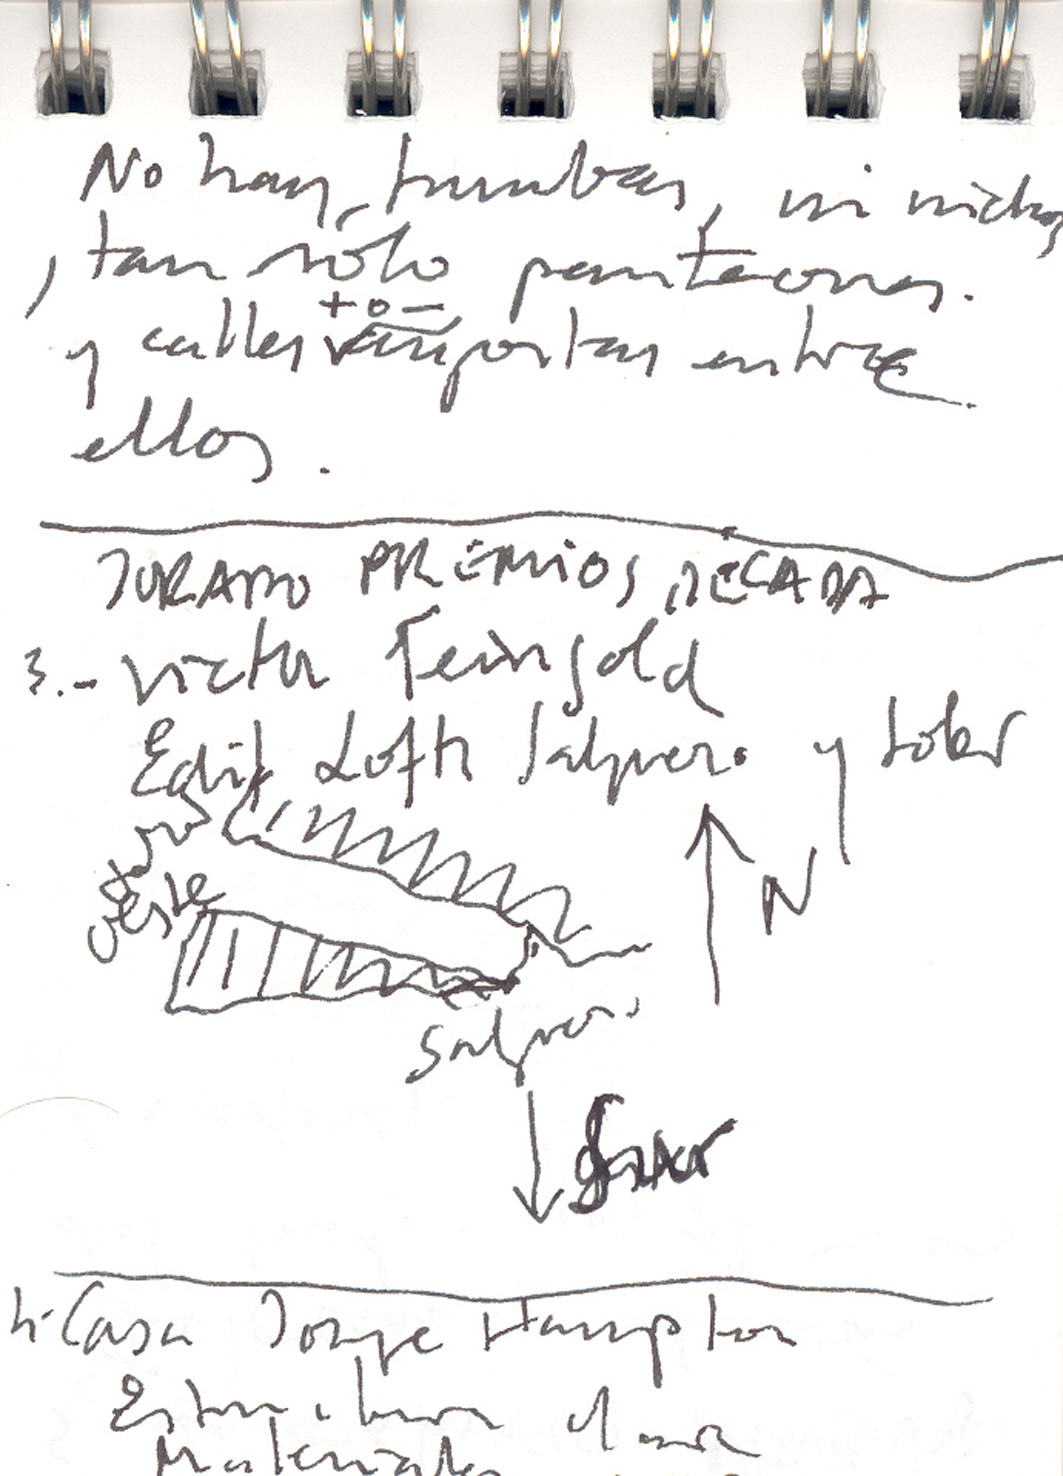 No hay tumbas, ni nichos
, tan sólo panteones.
+ o -
y calles angostas entre
ellos.
JURADO PREMIOS DECADA
3.- Victor Feingold
Edif Lofts Salguero y
oeste
N
Salguero
4- Casa Jorge Hampton
Estructura clara
Materiales